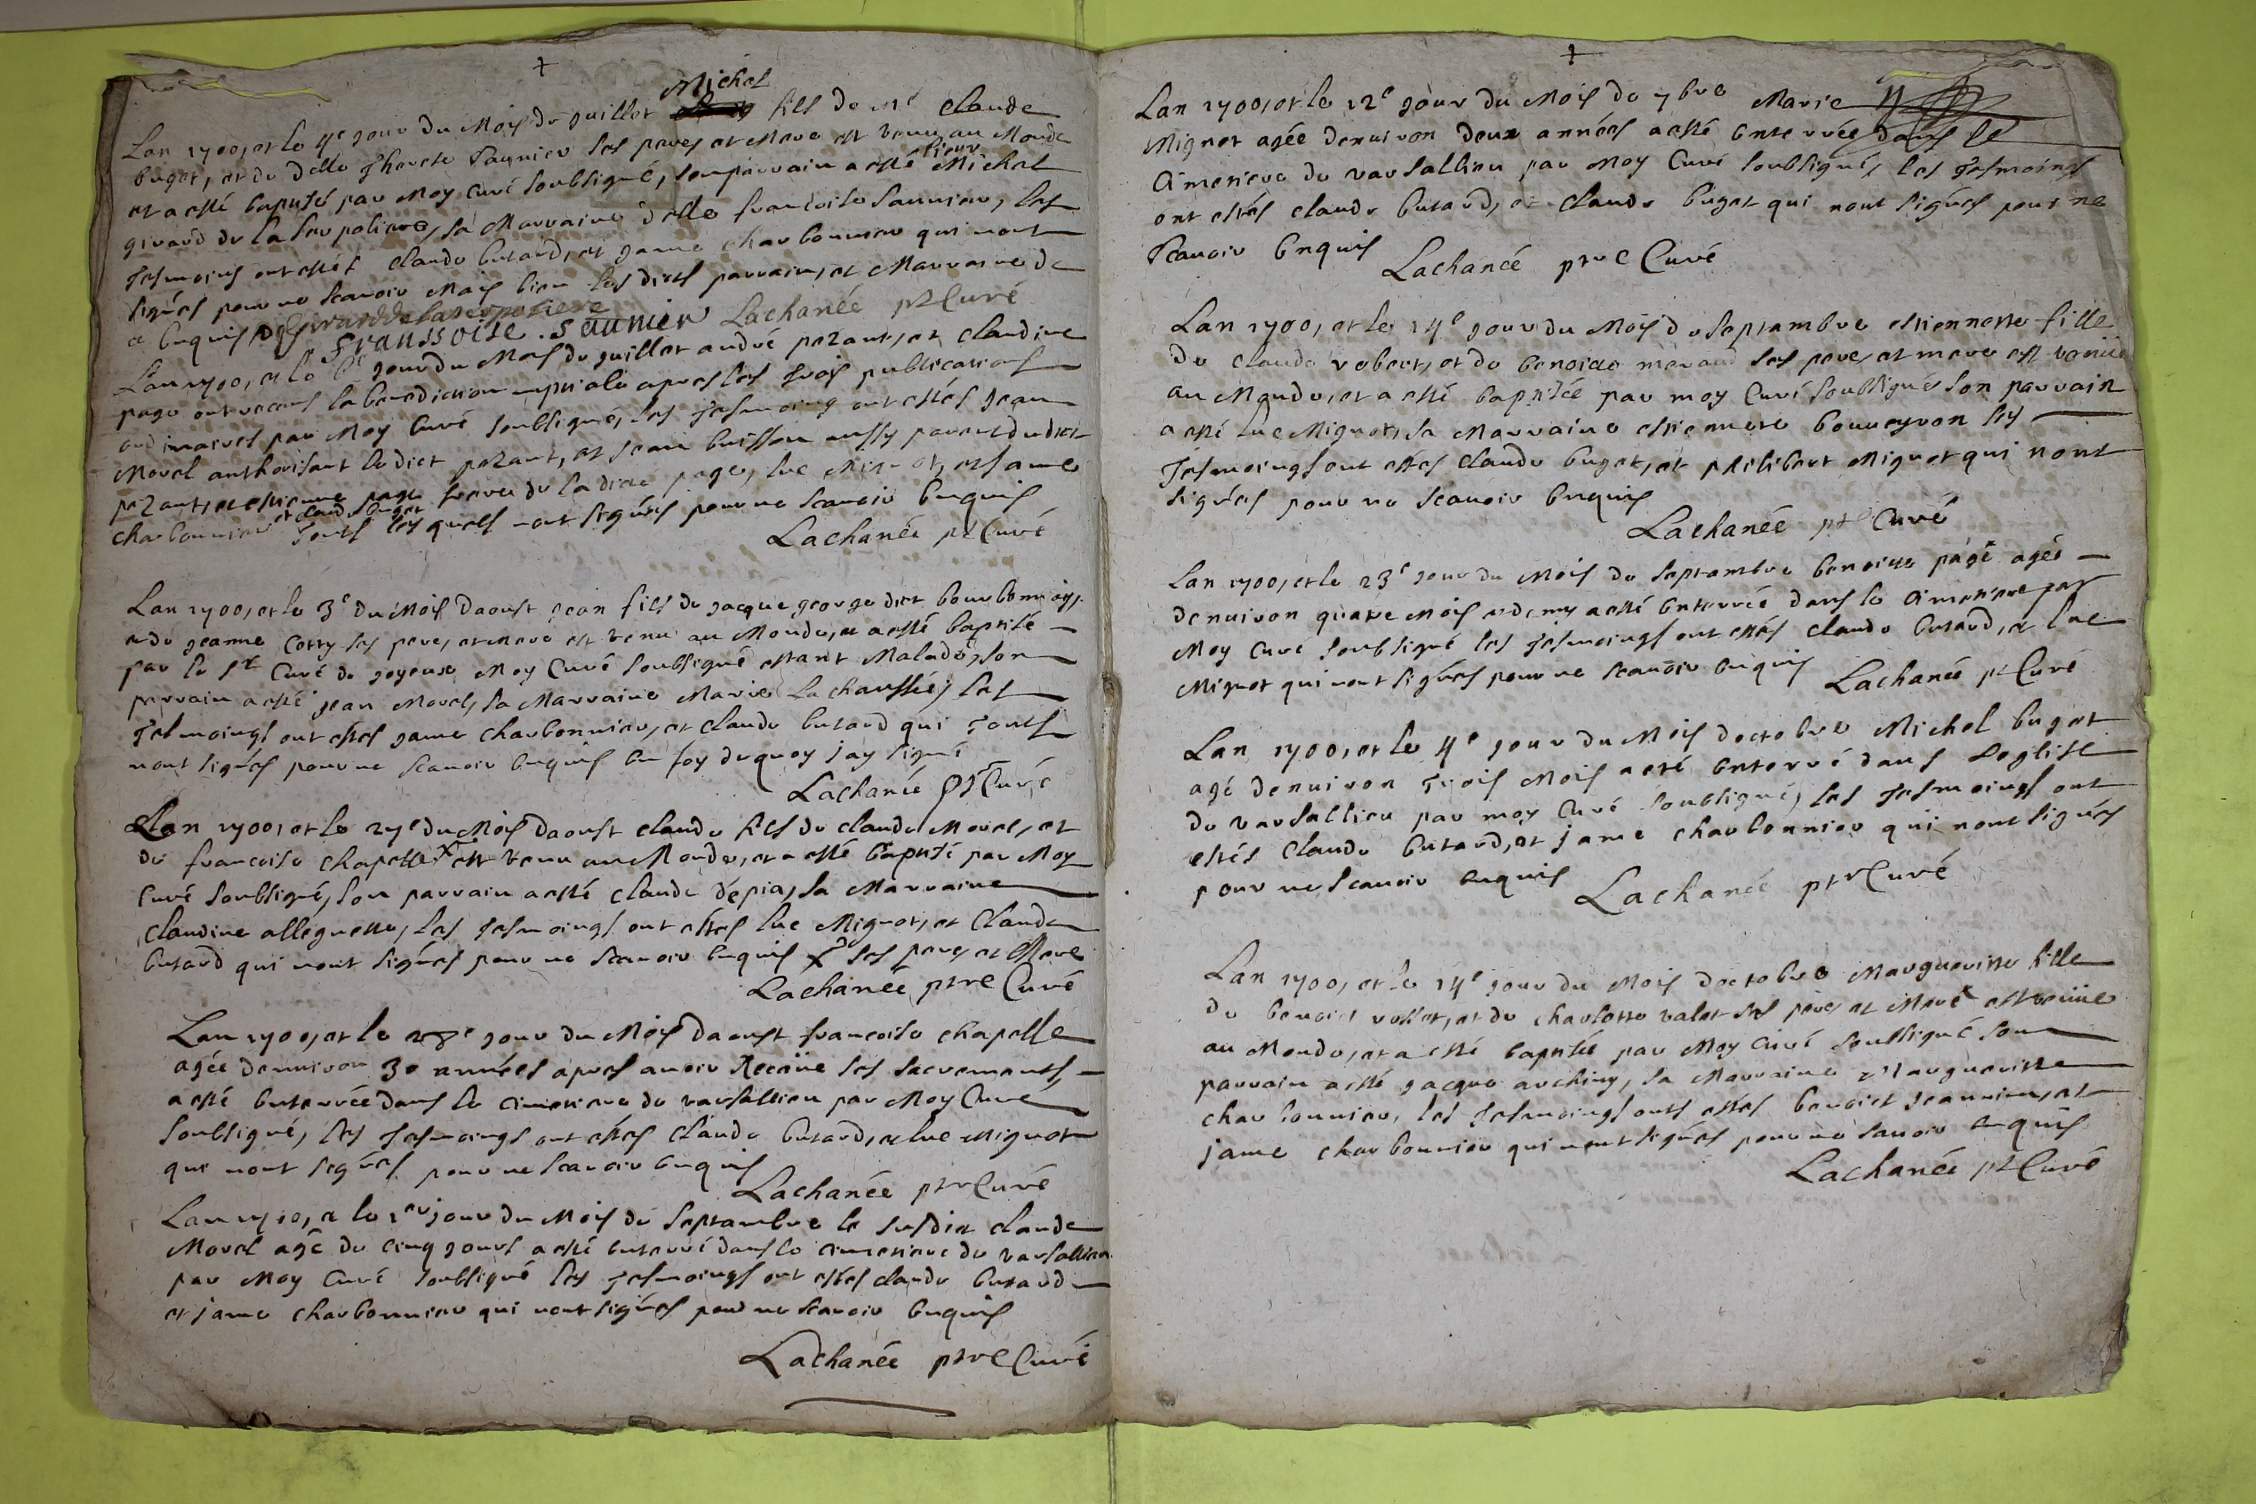 +
Michel
Lan 1700, et le 4e jour du Mois de juillet fils de Mr Claude
buget, et de delle Saunier ses peres et Mere est venu au Monde
et a esté baptisé par Moy Curé soubsigné, son parrain a esté sieur Michel
girard de la sa Marraine delle francoise saunier, les
tesmoins ont estés Claude butard, et jame charbonnier qui nont
signés pour ne scavoir Mais bien les dicts parrain, et Marraine de
ce enquis Girard franssoise . saunier Lachanée ptr Curé
Lan 1700, et le jour du Mois de juillet andré pezant, et Claudine
page ont receus la benediction nuptiale apres les trois publications
ordinaires par Moy Curé soubsigné, les tesmoins ont estés jean
Morel authorisant le dict pezant, et jean buisson aussy parent dudict
pezant, et estienne page frere de la dicte page, luc Mignot, et jame
charbonnier et claude buget touts lesquels nont signés pour ne scavoir enquis
Lachanée ptr Curé
Lan 1700, et le 3e du Mois daoust jean fils de jacque george dict bourbonnois,
et de jeanne Cotty ses pere, et Mere est venu au Monde, et a esté baptisé
par le sr Curé de joyeux Moy Curé soubsigné estant Malade, son
parrain a esté jean Morel, sa Marraine Marie Lachaussée, les
tesmoings ont estes jame charbonnier, et Claude butard qui touts
nont signés pour ne scavoir enquis en foy de quoy jay signé
Lachanée ptr Curé
Lan 1700, et le 27e du Mois daoust claude fils de claude Morel, et
de francoise chapelle x est venu au Monde, et a esté baptisé par Moy
Curé soubsigné, son parrain a esté claude dépia, sa Marraine
claudine allegnette, les tesmoings ont estes luc Mignot, et Claude
butard qui nont signés pour ne scavoir enquis x ses pere et Mere
Lachanée ptre Curé
Lan 1700, et le 28e jour du Mois daoust francoise chapelle
agée denviron 30 années apres avoir Receüe ses sacrements
a esté enterrée dans le cimetiere de varsallieu par Moy Curé
soubsigné, les tesmoings ont estes claude butard, et luc Mignot
qui nont signés pour ne scavoir enquis
Lachanée ptr Curé
Lan 1700, et le 1er jour du Mois de septambre le susdict claude
Morel agé de cinq jours a esté enterré dans le cimetiere de varsallieu
par Moy Curé soubsigné les tesmoings ont estes claude butard
et jame charbonnier qui nont signés pour ne scavoir enquis
Lachanée ptre Curé
+
Lan 1700, et le 12e jour du Mois de 7bre Marie
Mignot agée denviron deux années a esté enterrée dans le
Cimetiere de varsallieu par Moy Curé soubsigné, les tesmoins
ont estés claude butard, et claude buget qui nont signés pour ne
scavoir enquis Lachanée ptre Curé
Lan 1700, et le 14e jour du Mois de septambre estiennette fille
de claude robert, et de benoite meraud ses pere, et mere est venüe
au Monde, et a esté baptisée par moy Curé soubsigné son parrain
a esté luc Mignot, sa Marraine estiennete bouveyron les
tesmoings ont estes claude buget, et philibert Mignot qui nont
signés pour ne scavoir enquis
Lachanée ptr Curé
Lan 1700, et le 23e jour du Mois de septambre benoite page agée
denviron quatre Mois et demy a esté enterrée dans le Cimetiere par
Moy Curé soubsigné les tesmoings ont estés claude butard, et luc
Mignot qui nont signés pour ne scavoir enquis Lachanée ptr Curé
Lan 1700, et le 4e jour du Mois doctobre Michel buget
agé denviron trois Mois a esté enterré dans leglise
de varsallieu par moy Curé soubsigné, les tesmoings ont
estés claude butard, et jame charbonnier qui nont signés
pour ne scavoir enquis Lachanée ptr Curé
Lan 1700, et le 14e jour du Mois doctobre Margueritte fille
de benoict vollet, et de charlotte valet ses pere et Mere est venüe
au Monde, et a esté baptisée par Moy Curé soubsigné son
parrain a esté jacque archiny, sa Marraine Margueritte
charbonnier, les tesmoings onts estes benoict jeannin, et
jame charbonnier qui nont signés pour ne scavoir enquis
Lachanée ptr Curé